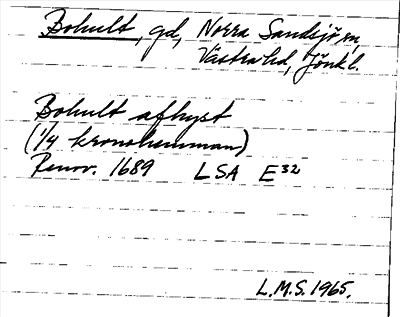 Bohult, gd, Norra Sandsjö sn,
Västra hd, Jönk.l.
Bohult afhyst
(1/4 kronohemman)
Renov. 1689 LSA E³²
L.M.S. 1965.